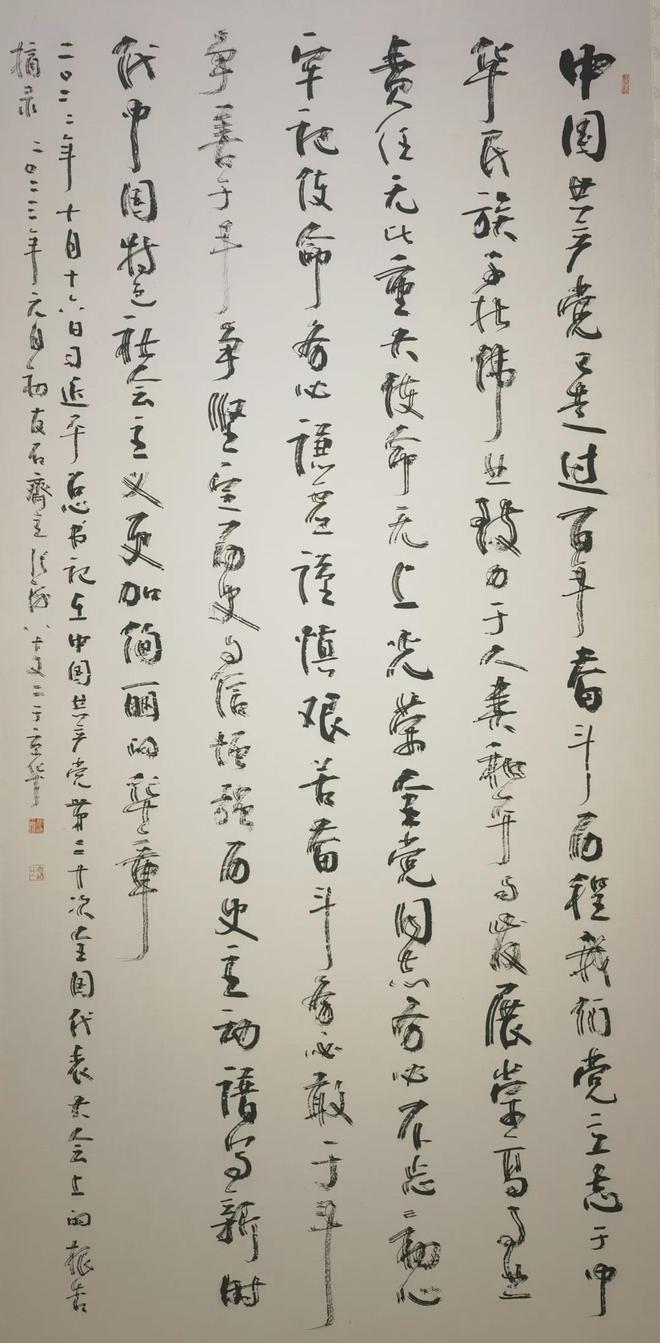 中国共产党已走过百年奋斗历程我们党立志于中
华民族千秋伟业致力于人类和平与发展崇高事业
责任无比重大使命无上光荣全党同志务必不忘初心
牢记使命务必謙虚謹慎艰苦奋斗务必敢于斗
争善于斗争堅定历史自信增强历史主动譜写新时
代中国特色社会主义更加绚丽的华章
二〇二二年十月十六日习近平总书记在中国共产党第二十次全国代表大会上的报告
摘录 二〇二三年元月初友石齋主八十又二于京华